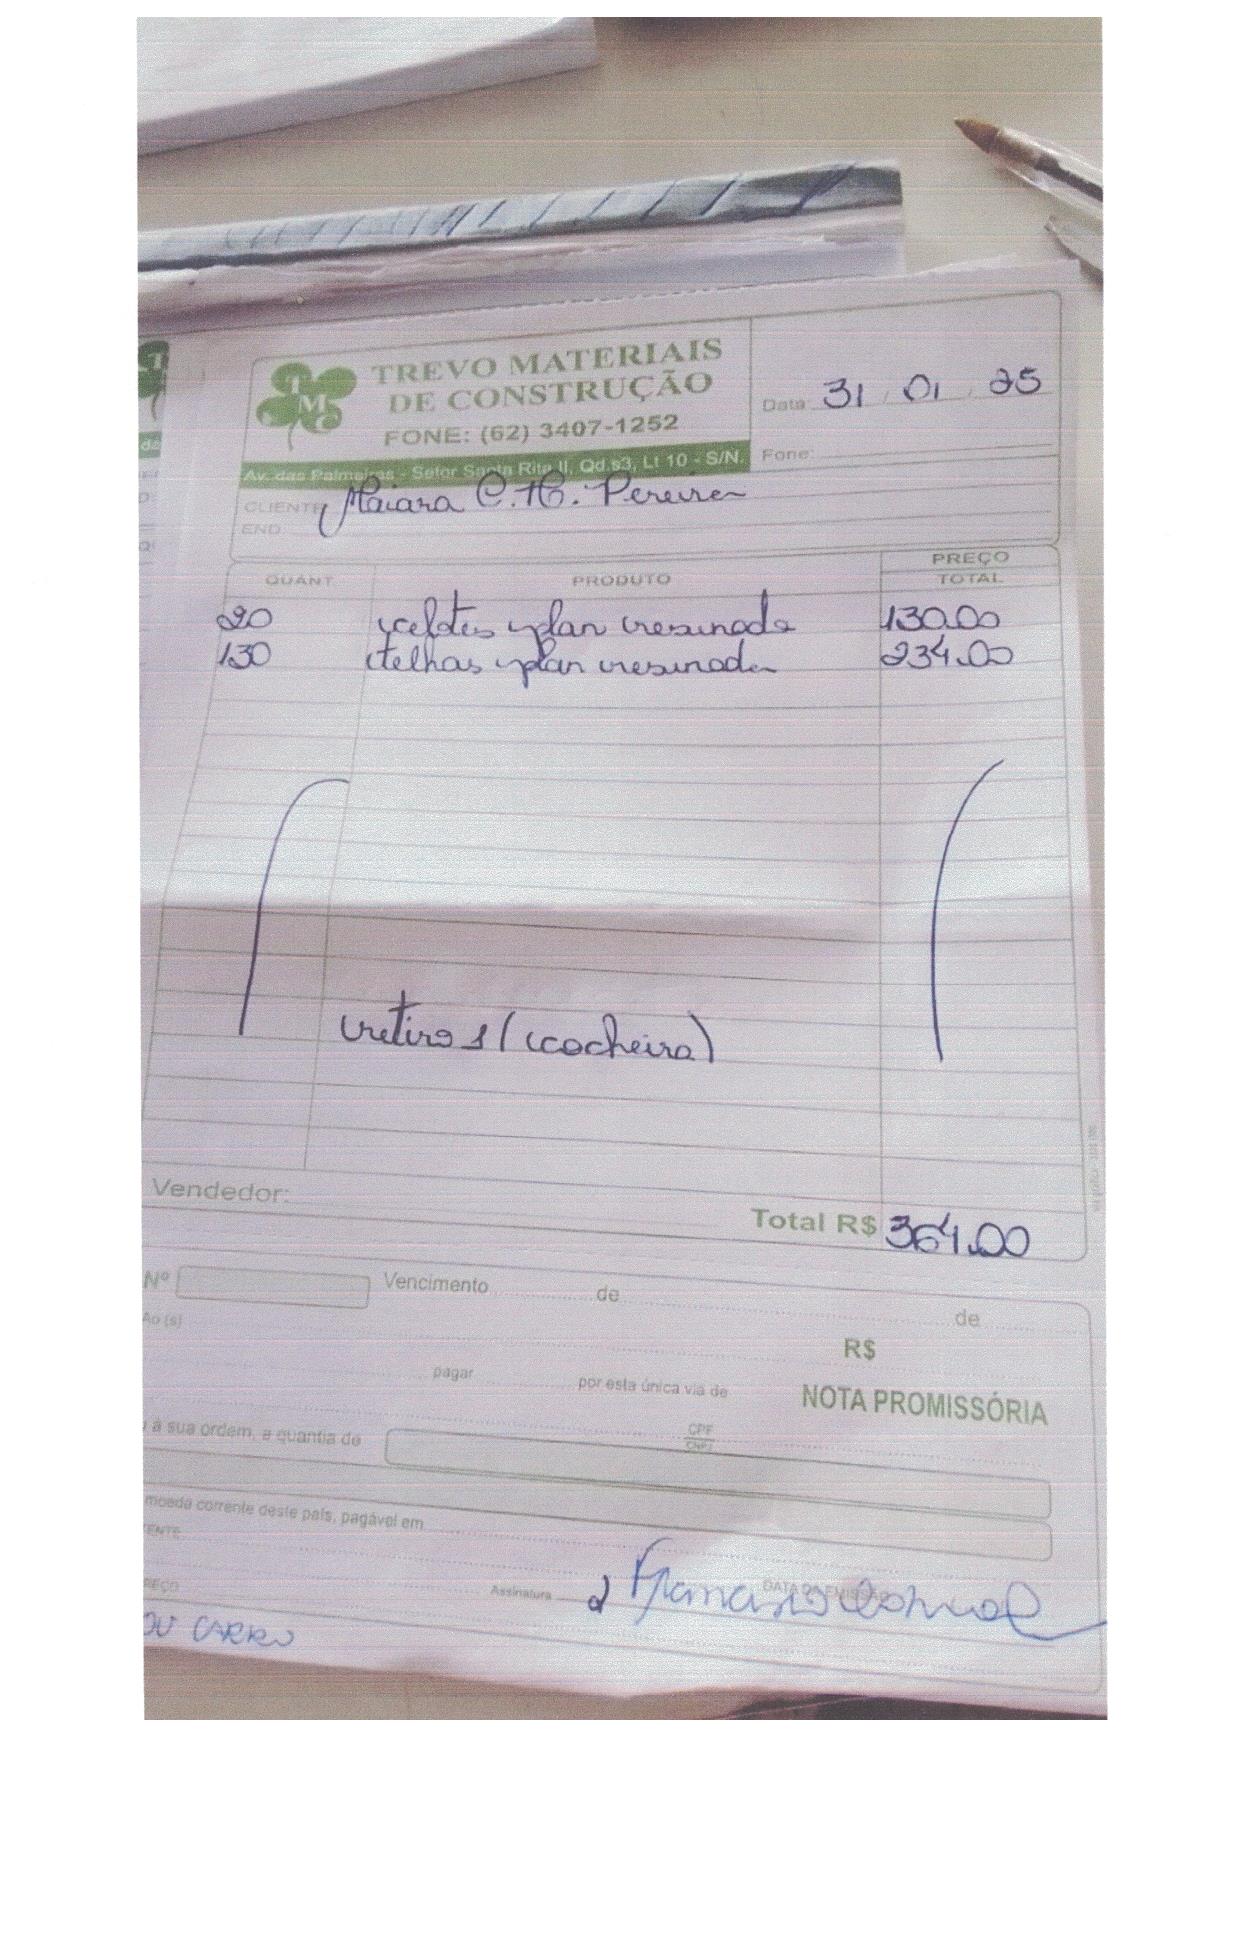 TMC
TREVO MATERIAIS
DE CONSTRUÇÃO
FONE: (62) 3407-1252
Av. das Palmeiras - Setor Santa Rita II, Qd.s3, Lt 10 - S/N.
Data: 31 / 01 / 25
Fone:
CLIENTE Maiara C. H. Pereira
END.
QUANT. PRODUTO PREÇO TOTAL
20 plan resinada 130.00
130 telhas plan resinada 234.00
retiro 1 (cocheira)
Vendedor:
Total R$ 364.00
Nº Vencimento de de
Ao (s) R$
pagar por esta única via de NOTA PROMISSÓRIA
à sua ordem, a quantia de CPF CNPJ
moeda corrente deste país, pagável em
ENTE DATA DA EMISSÃO
REÇO Assinatura
OU CARRO